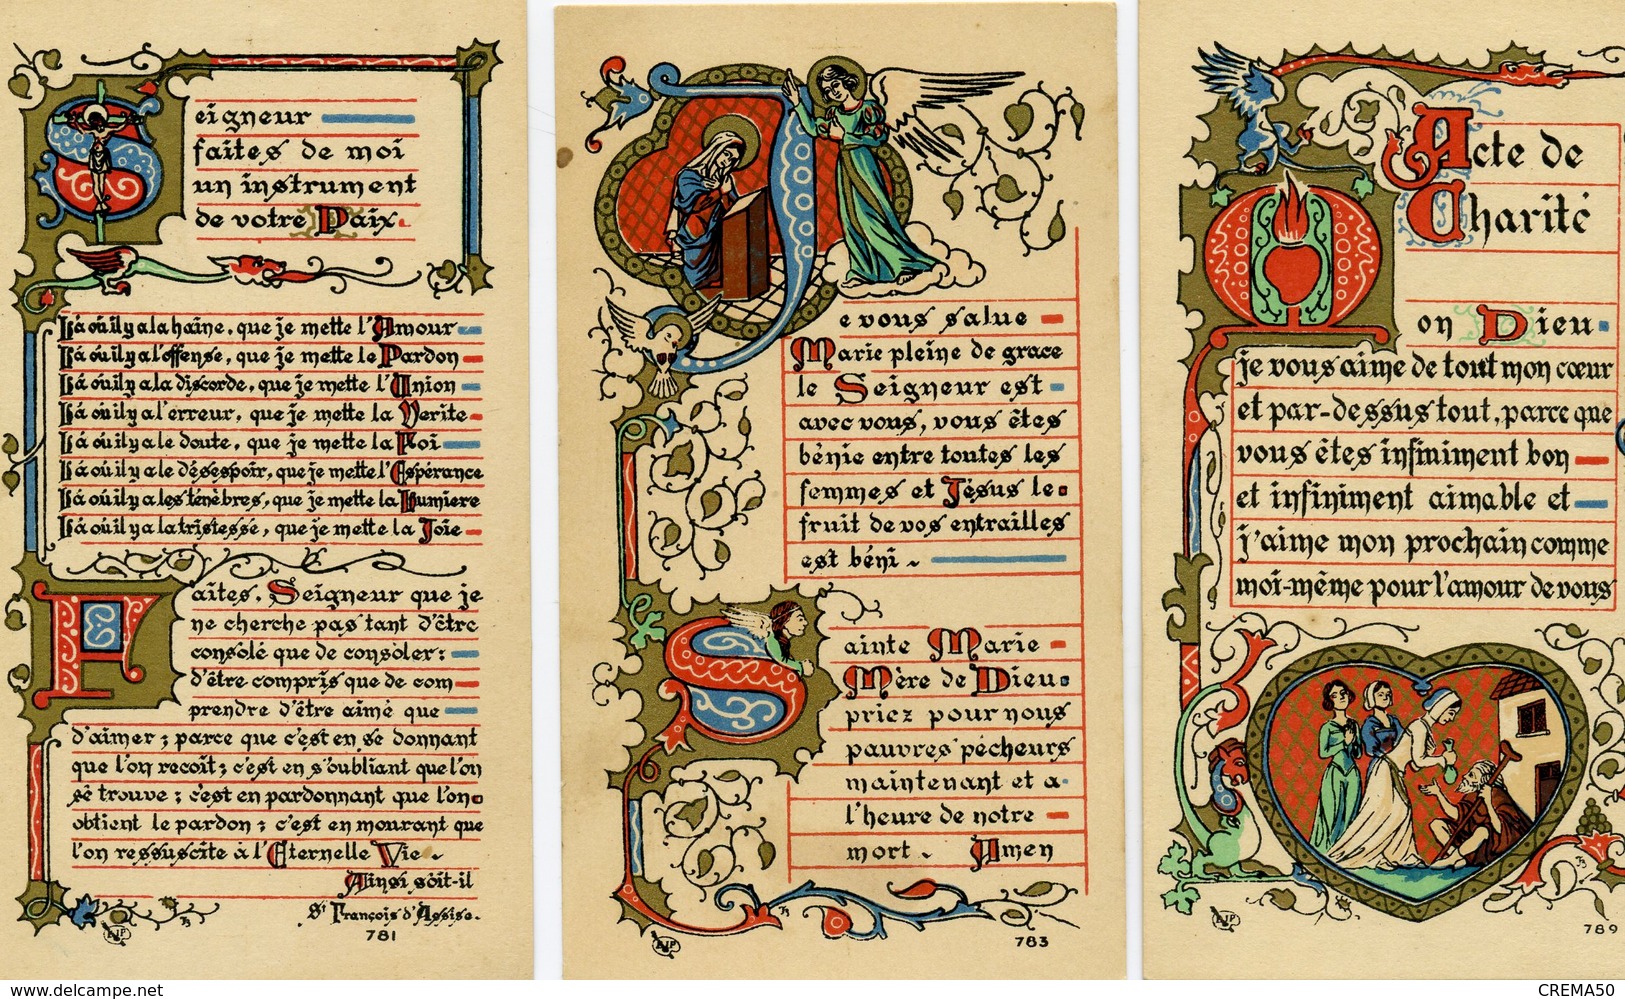 Seigneur
faites de moi
un instrument
de votre Paix.
Là où il y a la haine, que je mette l'Amour
Là où il y a l'offense, que je mette le Pardon
Là où il y a la discorde, que je mette l'Union
Là où il y a l'erreur, que je mette la Verite
Là où il y a le doute, que je mette la Foi
Là où il y a le désespoir, que je mette l'Espérance
Là où il y a les ténèbres, que je mette la Lumiere
Là où il y a la tristesse, que je mette la Joie
Faites, Seigneur que je
ne cherche pas tant d'être
consolé que de consoler;
d'être compris que de com
prendre d'être aimé que
d'aimer; parce que c'est en se donnant
que l'on recoit; c'est en s'oubliant que l'on
se trouve; c'est en pardonnant que l'on
obtient le pardon; c'est en mourant que
l'on ressuscite à l'Eternelle Vie.
Ainsi soit-il
St François d'Assise.
AJP
781
Je vous salue
Marie pleine de grace
le Seigneur est
avec vous, vous êtes
bénie entre toutes les
femmes et Jésus le
fruit de vos entrailles
est béni
Sainte Marie
Mère de Dieu
priez pour nous
pauvres pécheurs
maintenant et a
l'heure de notre
mort. Amen
AJP
783
Acte de
Charité
Mon Dieu
je vous aime de tout mon cœur
et par-dessus tout, parce que
vous êtes infiniment bon
et infiniment aimable et
j'aime mon prochain comme
moi-même pour l'amour de vous
AJP
789
www.delcampe.net
CREMA50